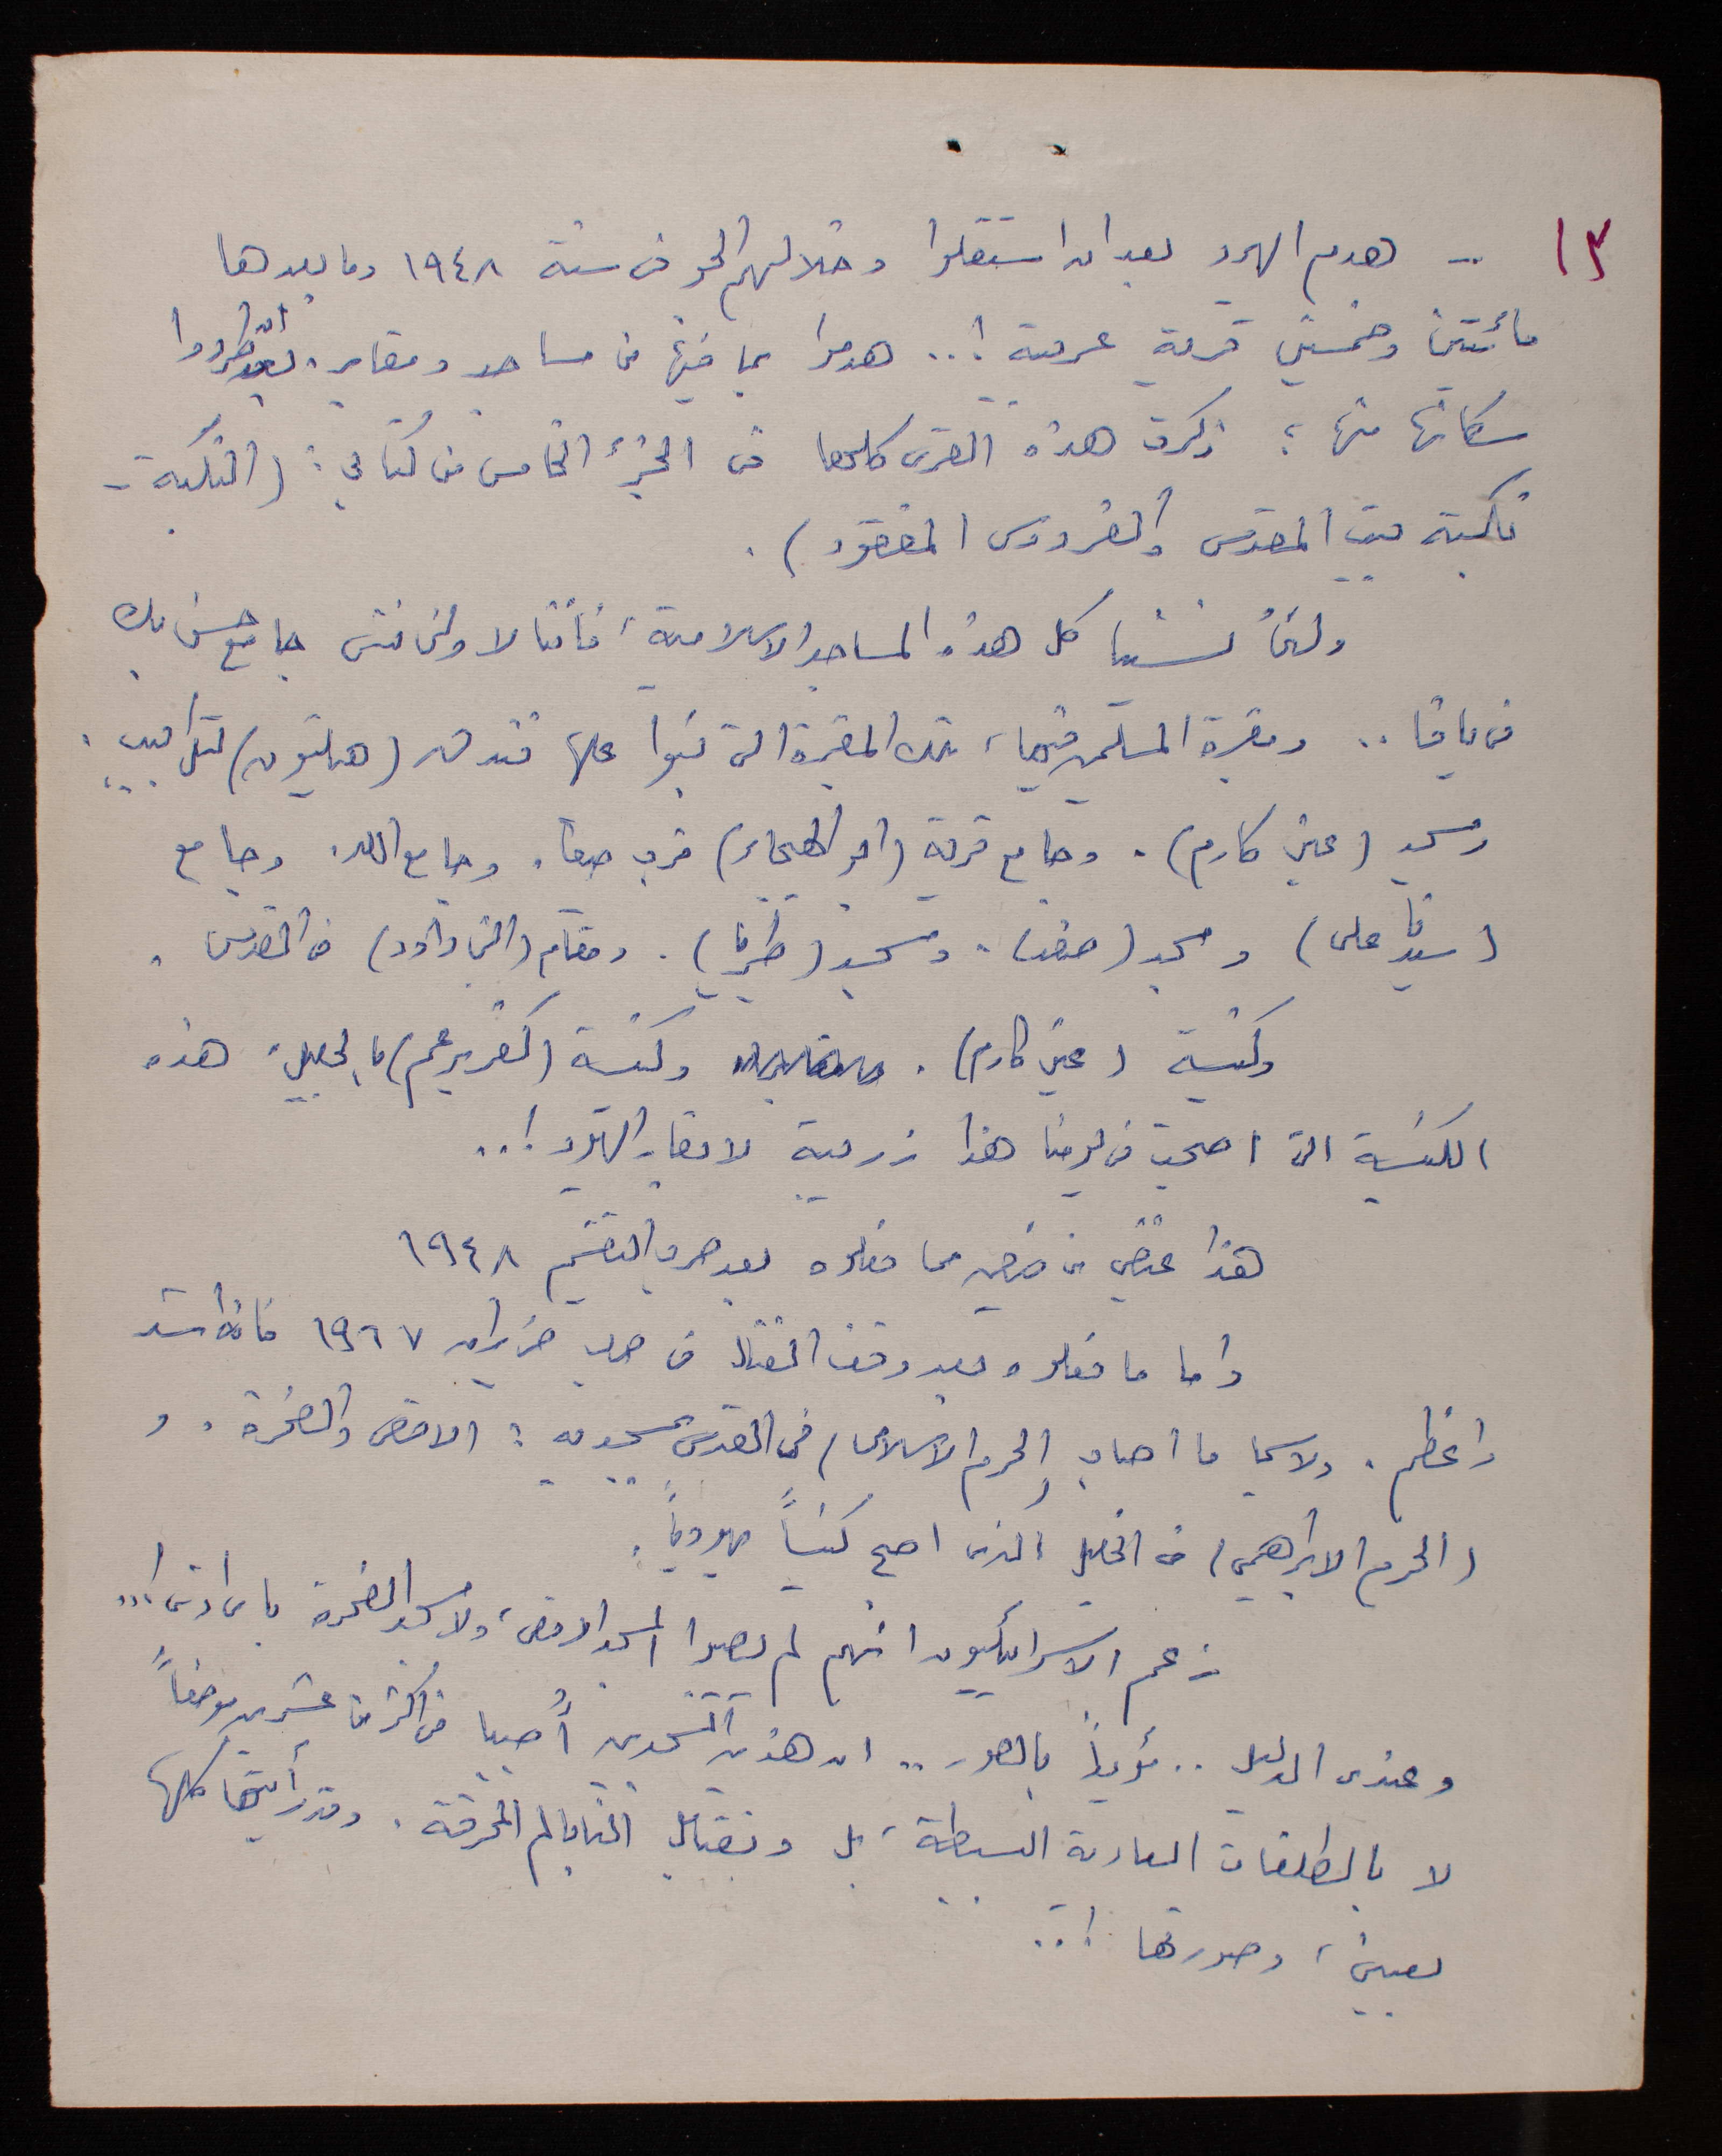 ١٣ - هدم اليهود بعد ان استقلوا وخلا لهم الجو في سنة ١٩٤٨ وما بعدها
مائتين وخمسين قرية عربية !.. هدموها بما فيها من مساجد ومقابر. بعد ان طردوا
سكانها منها ؛ ذكرت هذه القرى كلها في الجزء الخامس من كتابي : (النكبة -
نكبة بيت المقدس والفردوس المفقود) .
ولئن نسينا كل هذه المساجد الاسلامية ، فاننا لا ولن ننسى جامع حسن بك
في يافا .. ومقبرة المسلمين فيها ، تلك المقبرة التي بنوا عليها فندق (هيلتون) لتل ابيب .
ومسجد (عين كارم) . وجامع قرية (ابو الهيجاء) قرب حيفا . وجامع اللد . وجامع
(سيدنا علي) ومسجد (صفد) . ومسجد (طبريا) . ومقام (النبي داود) في القدس .
وكنيسة (عين كارم) . وكنيسة (كفر برعم) بالجليل ، هذه
الكنيسة التي اصبحت في يومنا هذا زريبة لابقار اليهود !..
هذا غيض من فيض مما فعلوه بعد حرب التقسيم ١٩٤٨
واما ما فعلوه بعد وقف القتال في حرب حزيران ١٩٦٧ فانه اشد
واعظم . ولا سيما ما اصاب (الحرم الاسلامي) في القدس بمسجديه : الاقصى والصخرة . و
(الحرم الابراهيمي) في الخليل الذي اصبح كنيساً يهودياً .
زعم الاسرائيليون انهم لم يصيبوا المسجد الاقصى ، ولا مسجد الصخرة باي اذى !..
وعندي الدليل .. مؤيداً بالصور .. ان هذين المسجدين أُصيبا في اكثر من عشرين موضعاً
لا بالطلقات العادية البسيطة ، بل وبقنابل النابالم المحرقة . وقد رأيتها كلها
بعيني ، وصورتها !..